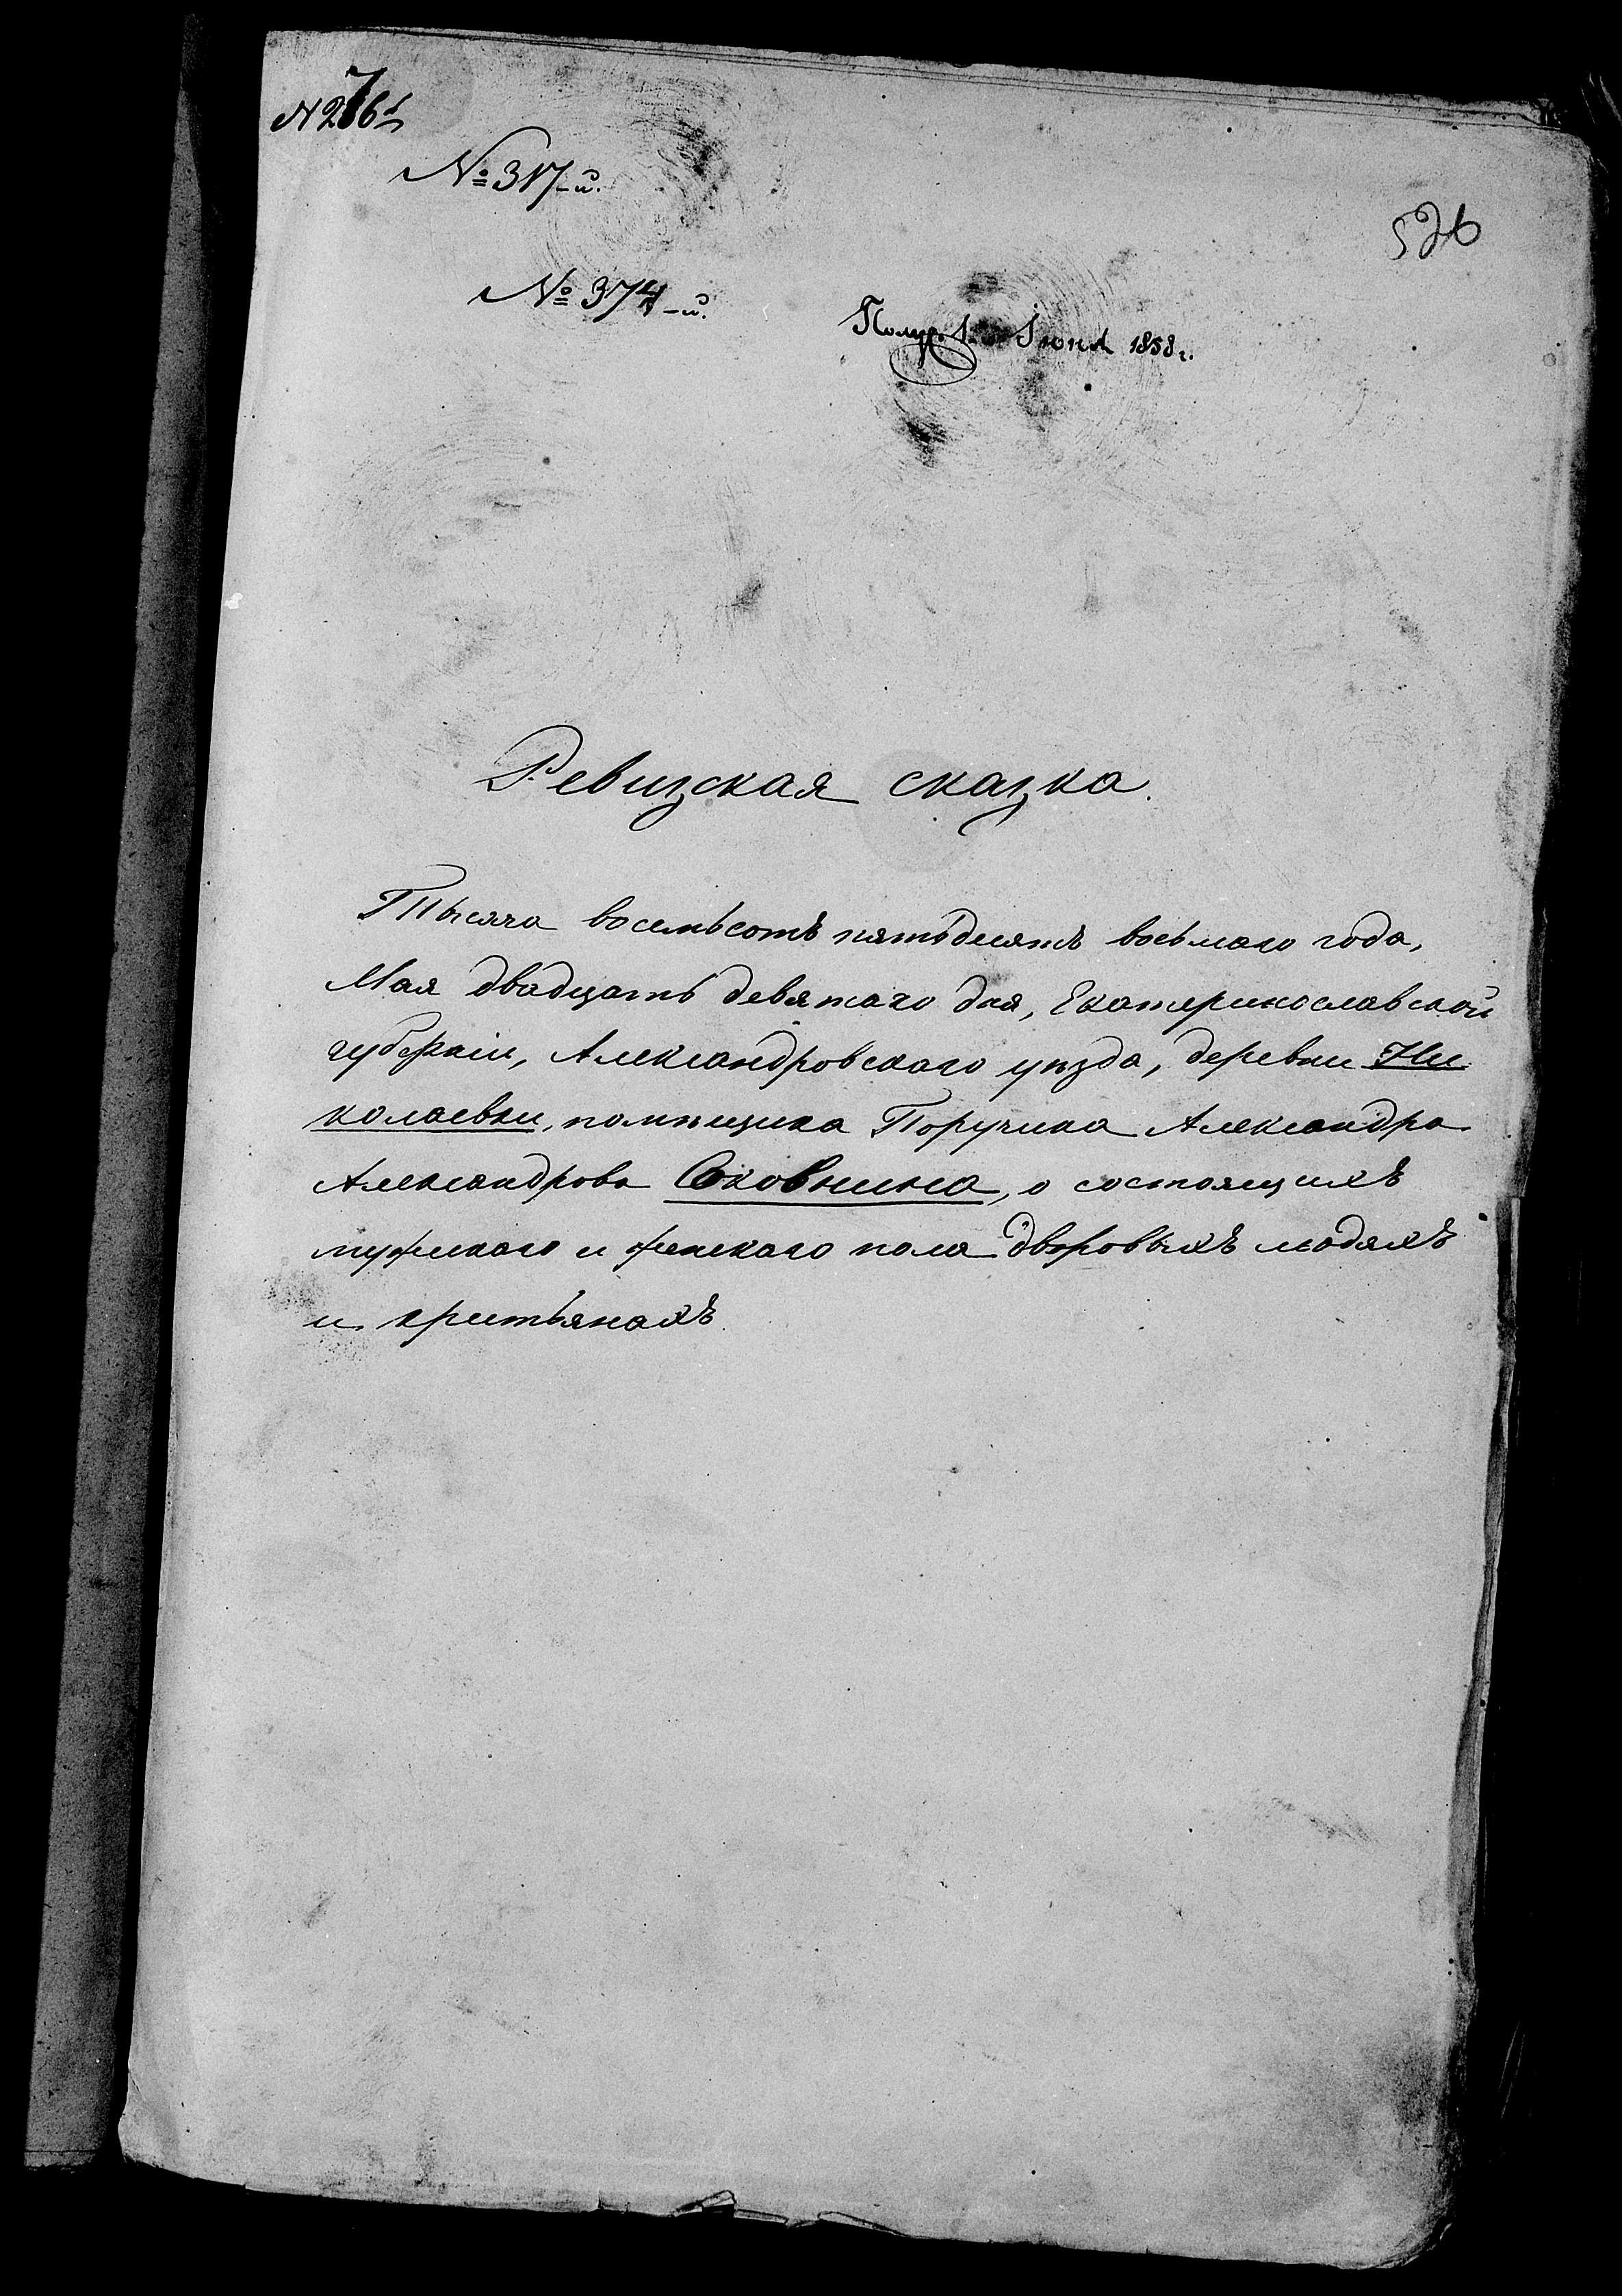 № 317-й.
526
№ 374-й.
Получ. 1 Іюня 1858 г.
Ревизская сказка.
Тысяча восемьсотъ пятьдесятъ восьмаго года,
Мая двадцать девятаго дня, Екатеринославской
губерніи, Александровскаго уѣзда, деревни Ни
колаевки, помѣщика Поручика Александра
Александрова Соковнина, о состоящихъ
мужскаго и женскаго пола дворовыхъ людяхъ
и крестьянахъ